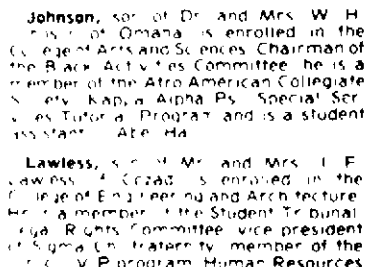 Johnson, son of Dr. and Mrs. W. H.
of Omaha is enrolled in the
College of Arts and Sciences. Chairman of
the Black Activities Committee, he is a
member of the Afro American Collegiate
Society, Kappa Alpha Psi, Special Ser-
vices Tutorial Program and is a student
assistant in Abel Hall.
Lawless, son of Mr. and Mrs. L. F.
Lawless of Cozad, is enrolled in the
College of Engineering and Architecture.
He is a member of the Student Tribunal,
Legal Rights Committee, vice president
of Sigma Chi fraternity, member of the
V.I.P. program, Human Resources